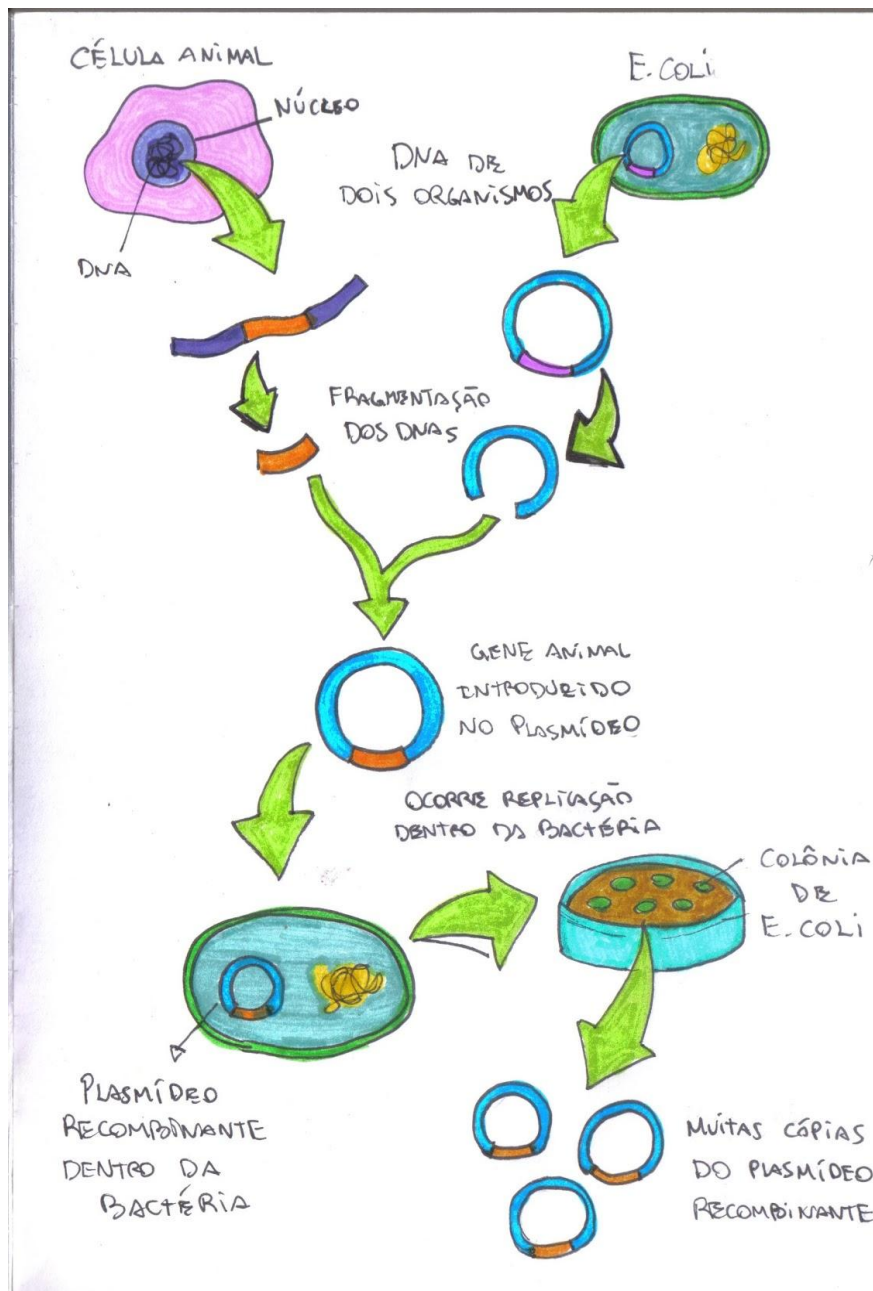 CÉLULA ANIMAL
E. COLI
NÚCLEO
DNA DE
DOIS ORGANISMOS
DNA
FRAGMENTAÇÃO
DOS DNAS
GENE ANIMAL
INTRODUZIDO
NO PLASMÍDEO
OCORRE REPLICAÇÃO
DENTRO DA BACTÉRIA
COLÔNIA
DE
E. COLI
PLASMÍDEO
RECOMBINANTE
DENTRO DA
BACTÉRIA
MUITAS CÓPIAS
DO PLASMÍDEO
RECOMBINANTE